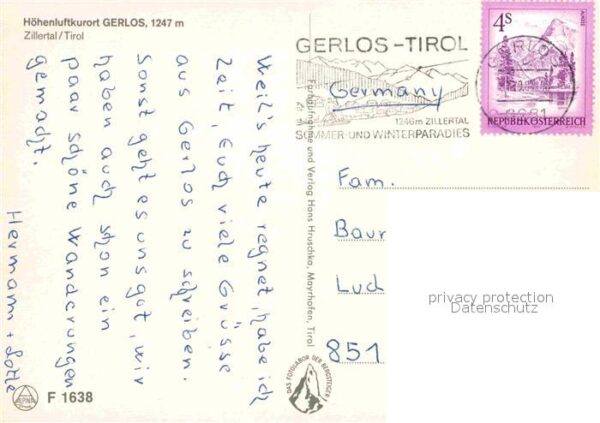 Höhenluftkurort GERLOS, 1247 m
Zillertal/Tirol
Weil's heute regnet, habe ich
Zeit, Euch viele Grüsse
aus Gerlos zu schreiben.
Sonst geht es uns gut, wir
haben auch schon ein
paar schöne Wanderungen
gemacht.
Hermann + Lotte
F 1638
Farbaufnahme und Verlag Hans Hruschka, Mayrhofen, Tirol
DAS FOTOLABOR DER BERGSTEIGER
GERLOS-TIROL
1246m ZILLERTAL
SOMMER-UND WINTERPARADIES
Germany
4S
GERLOS
REPUBLIK ÖSTERREICH
Fam.
Baur
Luch
851
privacy protection
Datenschutz